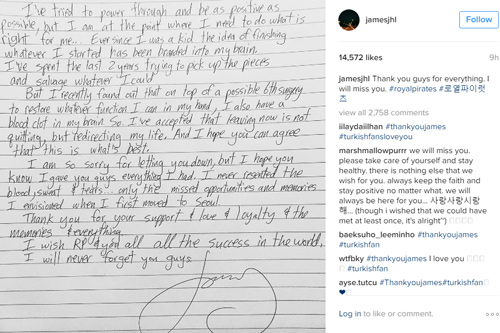 I've tried to power through and be as positive as
possible, but I am at the point where I need to do what is
right for me.. Ever since I was a kid the idea of finishing
whatever I started has been branded into my brain.
I've spent the last 2 years trying to pick up the pieces
and salvage whatever I could
But I recently found out that on top of a possible 6th surgery
to restore whatever function I can in my hand, I also have a
blood clot in my brain. So I've accepted that leaving now is not
quitting, but redirecting my life. And I hope you can agree
that this is what's best.
I am so sorry for letting you down, but I hope you
know I gave you guys everything I had. I never resented the
blood, sweat & tears... only the missed opportunities and memories
I envisioned when I first moved to Seoul.
Thank you for your support & love & loyalty & the
memories & everything.
I wish RP & you all all the success in the world,
I will never forget you guys
jamesjhl
Follow
14,572 likes
9h
jamesjhl Thank you guys for everything. I
will miss you. #royalpirates #로열파이럿
츠
view all 2,758 comments
iilaydaiilhan #thankyoujames
#turkishfansloveyou
marshmallowpurrr we will miss you.
please take care of yourself and stay
healthy. there is nothing else that we
wish for you. always keep the faith and
stay positive no matter what. we will
always be here for you... 사랑사랑시랑
해... (though i wished that we could have
met at least once, it's alright~)
baeksuho_leeminho #thankyoujames
#turkishfan
wtfbky #thankyoujames I love you
#turkishfan
ayse.tutcu #Thankyoujames#turkishfan
Log in to like or comment.